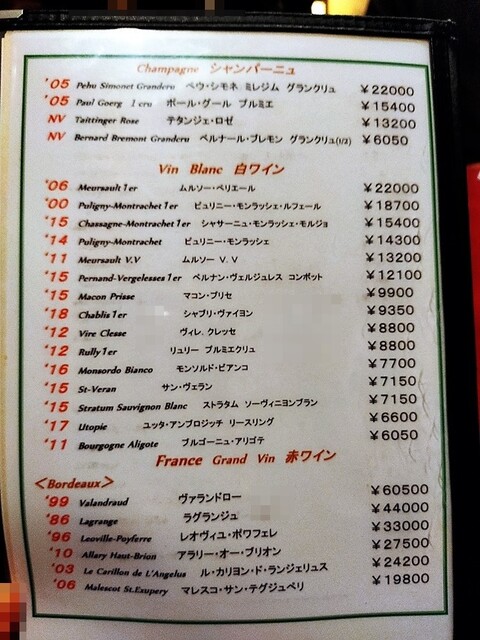 Champagne シャンパーニュ
'05 Pehu Simonet Grandcru ペウ・シモネ ミレジム グランクリュ ¥22000
'05 Paul Goerg 1 cru ポール・グール プルミエ ¥15400
NV Taittinger Rose テタンジェ・ロゼ ¥13200
NV Bernard Bremont Grandcru ベルナール・ブレモン グランクリュ(1/2) ¥6050
Vin Blanc 白ワイン
'06 Meursault 1er ムルソー・ペリエール ¥22000
'00 Puligny-Montrachet 1er ピュリニー・モンラッシェ・ルフェール ¥18700
'15 Chassagne-Montrachet 1er シャサーニュ・モンラッシェ・モルジョ ¥15400
'14 Puligny-Montrachet ピュリニー・モンラッシェ ¥14300
'11 Meursault V.V ムルソー V. V ¥13200
'15 Pernand-Vergelesses 1er ペルナン・ヴェルジュレス コンボット ¥12100
'15 Macon Prisse マコン・プリセ ¥9900
'18 Chablis 1er シャブリ・ヴァイヨン ¥9350
'12 Vire Clesse ヴィレ. クレッセ ¥8800
'12 Rully 1er リュリー プルミエクリュ ¥8800
'16 Monsordo Bianco モンソルド・ビアンコ ¥7700
'15 St-Veran サン・ヴェラン ¥7150
'15 Stratum Sauvignon Blanc ストラタム ソーヴィニヨンブラン ¥7150
'17 Utopie ユッタ・アンブロジッチ リースリング ¥6600
'11 Bourgogne Aligote ブルゴーニュ・アリゴテ ¥6050
France Grand Vin 赤ワイン
<Bordeaux>
'99 Valandraud ヴァランドロー ¥60500
'86 Lagrange ラグランジュ ¥44000
'96 Leoville-Poyferre レオヴィユ・ポワフェレ ¥33000
'10 Allary Haut-Brion アラリー・オー・ブリオン ¥27500
'03 Le Carillon de L'Angelus ル・カリヨン・ド・ランジェリュス ¥24200
'06 Malescot St.Exupery マレスコ・サン・テグジュペリ ¥19800